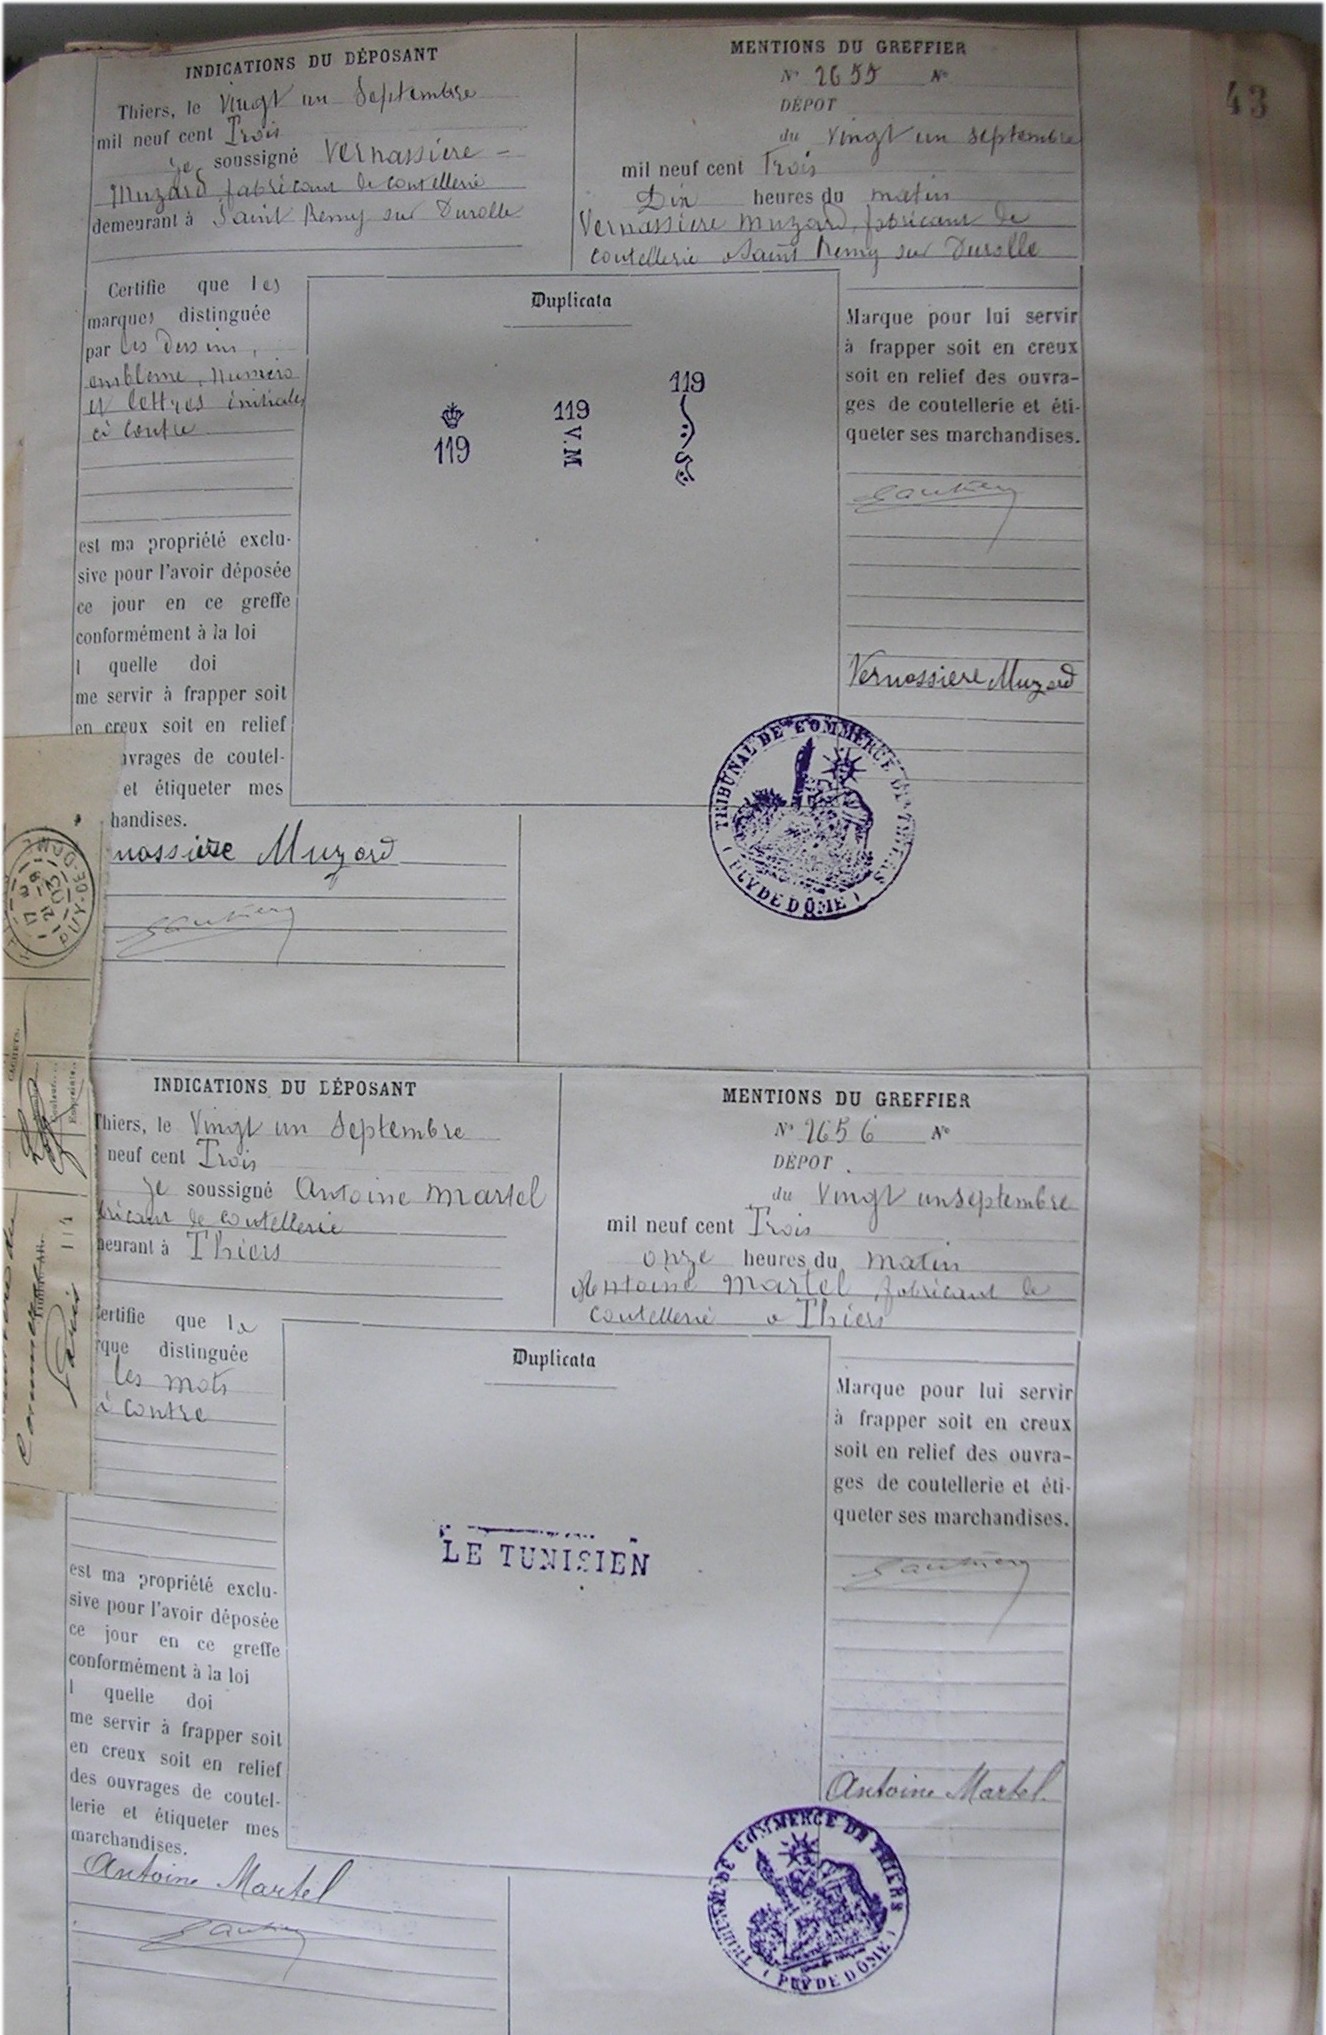 43
INDICATIONS DU DÉPOSANT
Thiers, le Vingt un Septembre
mil neuf cent Trois
je soussigné Vernassiere -
Muzard fabricant de coutellerie
demeurant à Saint Remy sur Durolle
MENTIONS DU GREFFIER
N° 2655 N°
DÉPOT
du Vingt un septembre
mil neuf cent Trois
Dix heures du matin
Vernassiere Muzard, fabricant de
coutellerie a Saint Remy sur Durolle
Certifie que les
marques distinguée
par les dessins,
embleme, numero
et lettres initiales
ci contre
est ma propriété exclu-
sive pour l'avoir déposée
ce jour en ce greffe
conformément à la loi
l quelle doi
me servir à frapper soit
en creux soit en relief
uvrages de coutel-
et étiqueter mes
handises.
nassiere Muzard
Duplicata
119
119
V.M
119
Marque pour lui servir
à frapper soit en creux
soit en relief des ouvra-
ges de coutellerie et éti-
queter ses marchandises.
Vernassiere Muzard
TRIBUNAL DE COMMERCE DE THIERS
( PUY DE DÔME )
PUY-DE-DOME
21 -9
03
INDICATIONS DU DÉPOSANT
Thiers, le Vingt un Septembre
neuf cent Trois
je soussigné Antoine Martel
bricant de coutellerie
meurant à Thiers
MENTIONS DU GREFFIER
N° 2656 N°
DÉPOT
du Vingt un septembre
mil neuf cent Trois
onze heures du matin
Antoine Martel, fabricant de
coutellerie a Thiers
ertifie que la
rque distinguée
les mots
i contre
est ma propriété exclu-
sive pour l'avoir déposée
ce jour en ce greffe
conformément à la loi
l quelle doi
me servir à frapper soit
en creux soit en relief
des ouvrages de coutel-
lerie et étiqueter mes
marchandises.
Antoine Martel
Duplicata
LE TUNISIEN
Marque pour lui servir
à frapper soit en creux
soit en relief des ouvra-
ges de coutellerie et éti-
queter ses marchandises.
Antoine Martel
TRIBUNAL DE COMMERCE DE THIERS
( PUY DE DÔME )